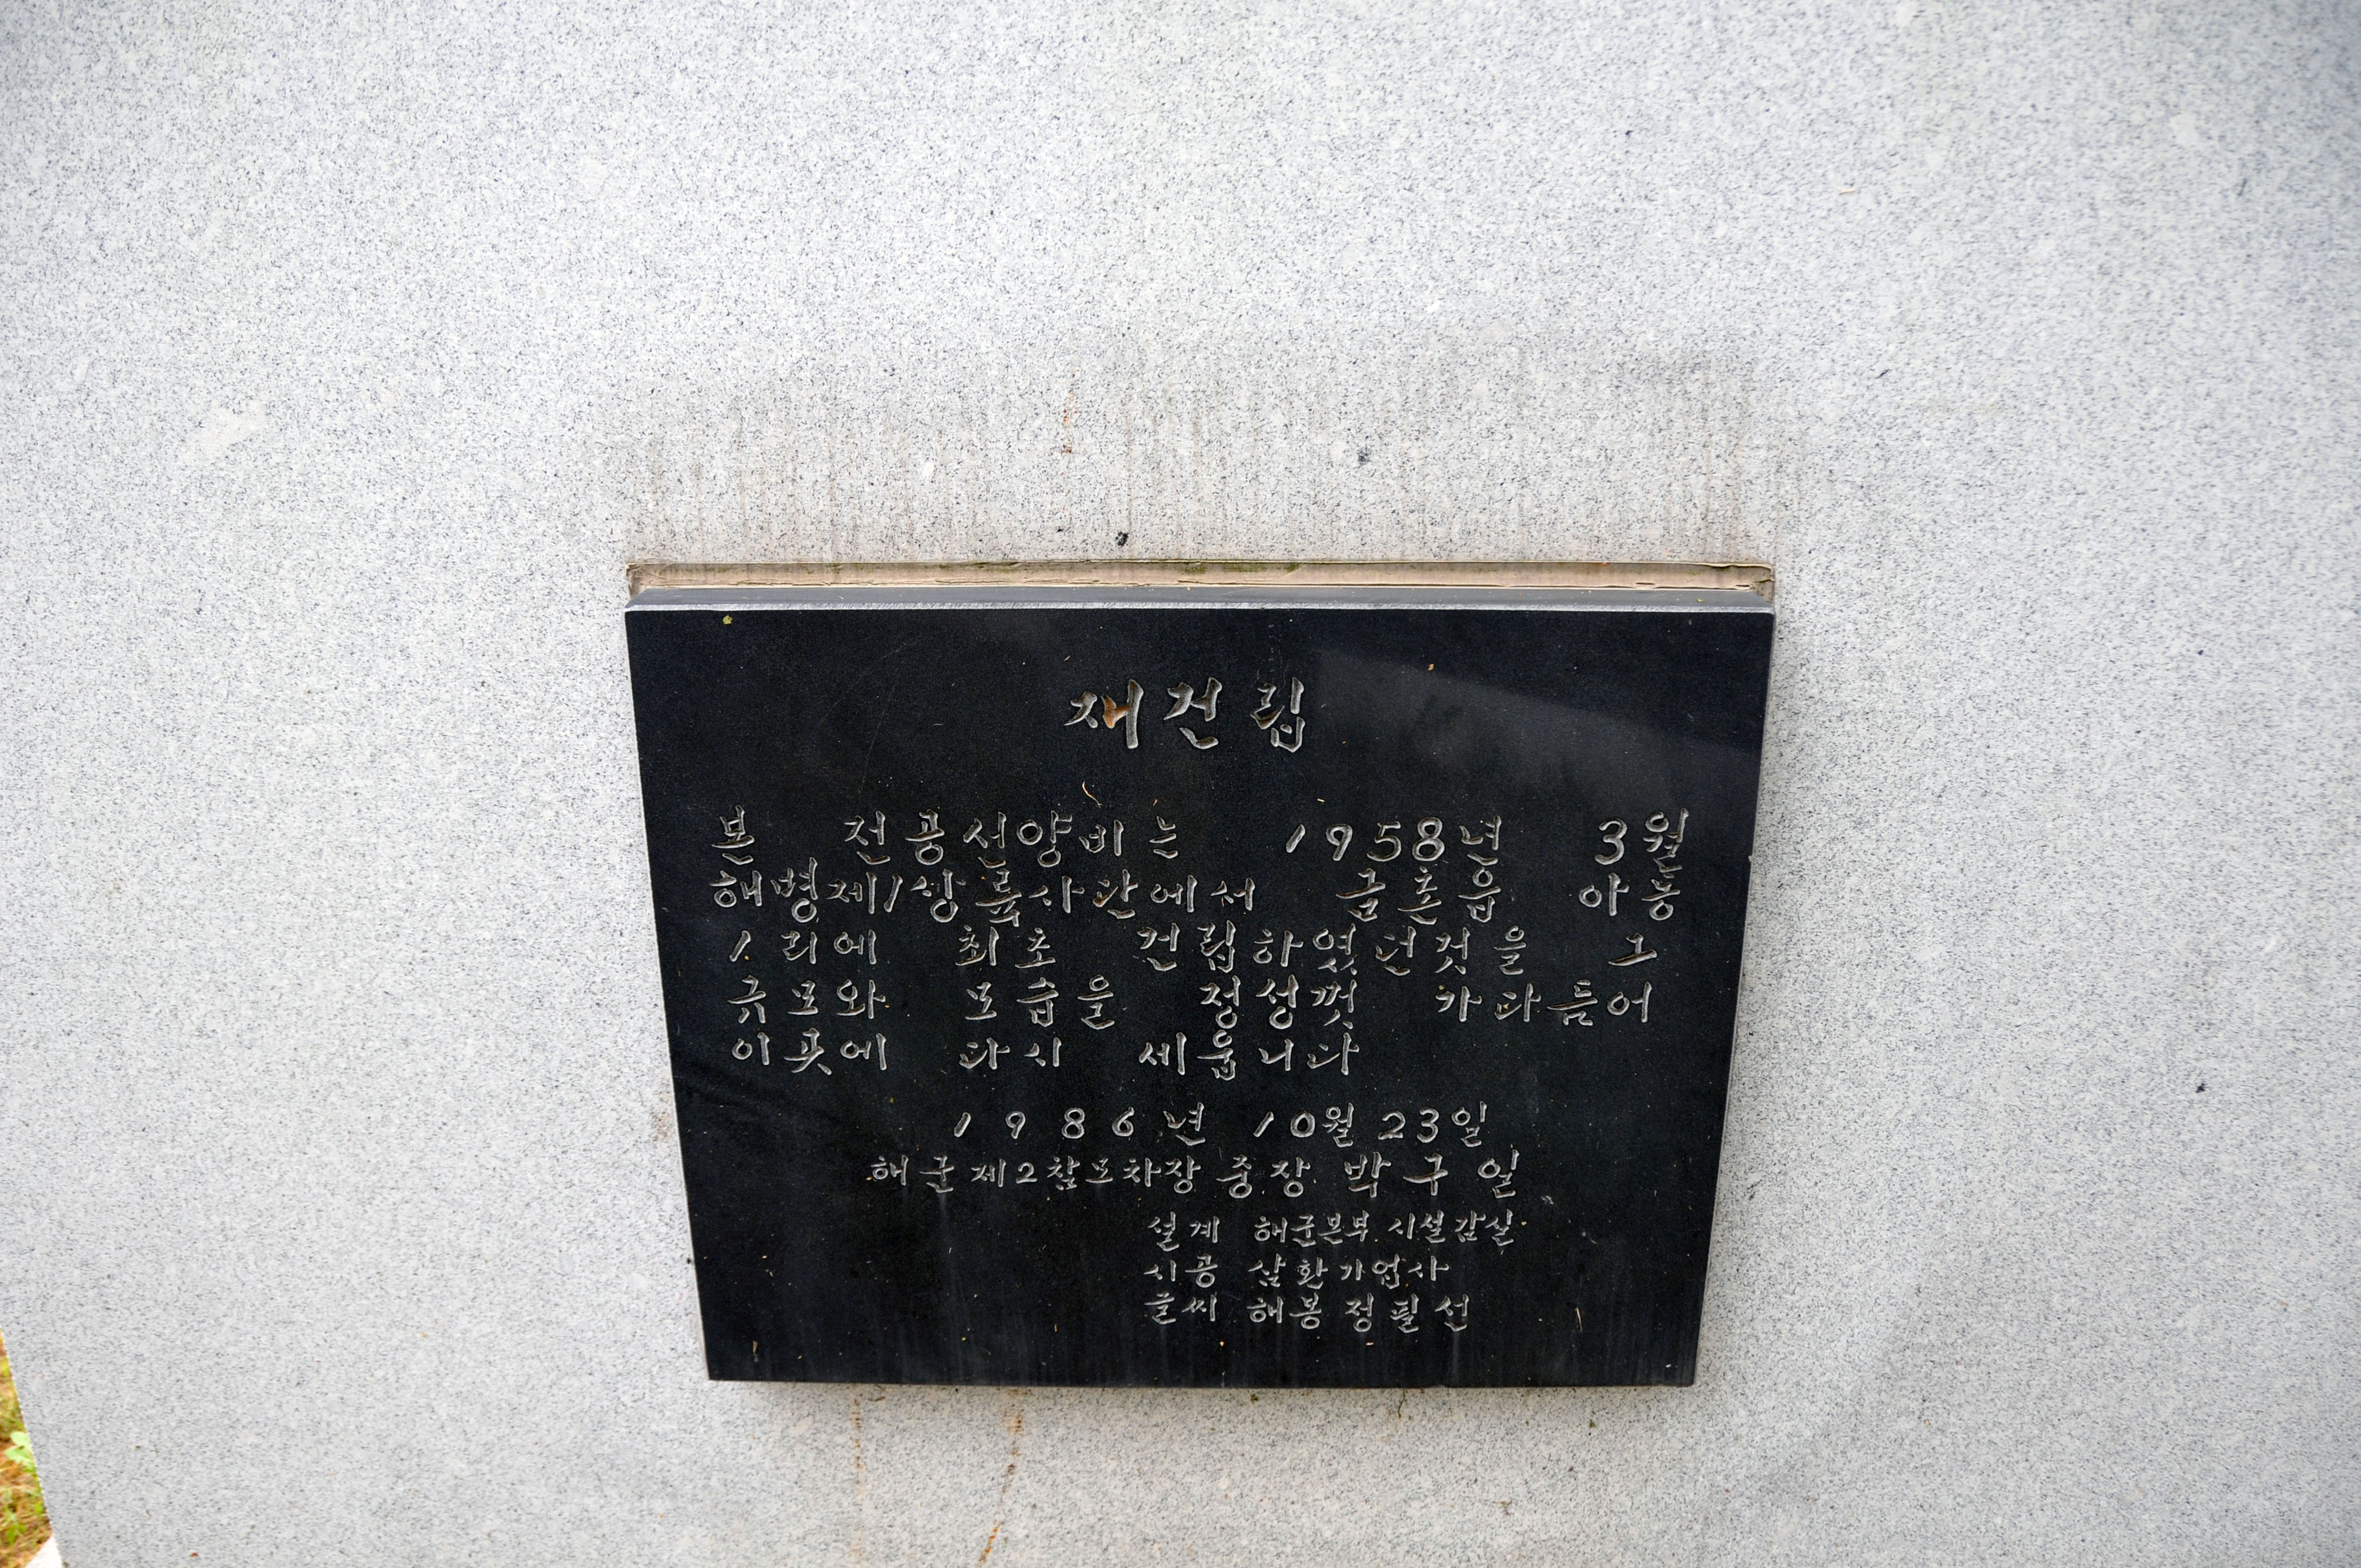 재건립
본 전공선양비는 1958년 3월
해병제1상륙사단에서 금촌읍 아동
1리에 최초 건립하였던것을 그
규모와 모습을 정성껏 가다듬어
이곳에 다시 세웁니다
1986년 10월 23일
해군 제2참모차장 중장 박구일
설계 해군본부 시설감실
시공 삼환기업사
글씨 해봉 정필선